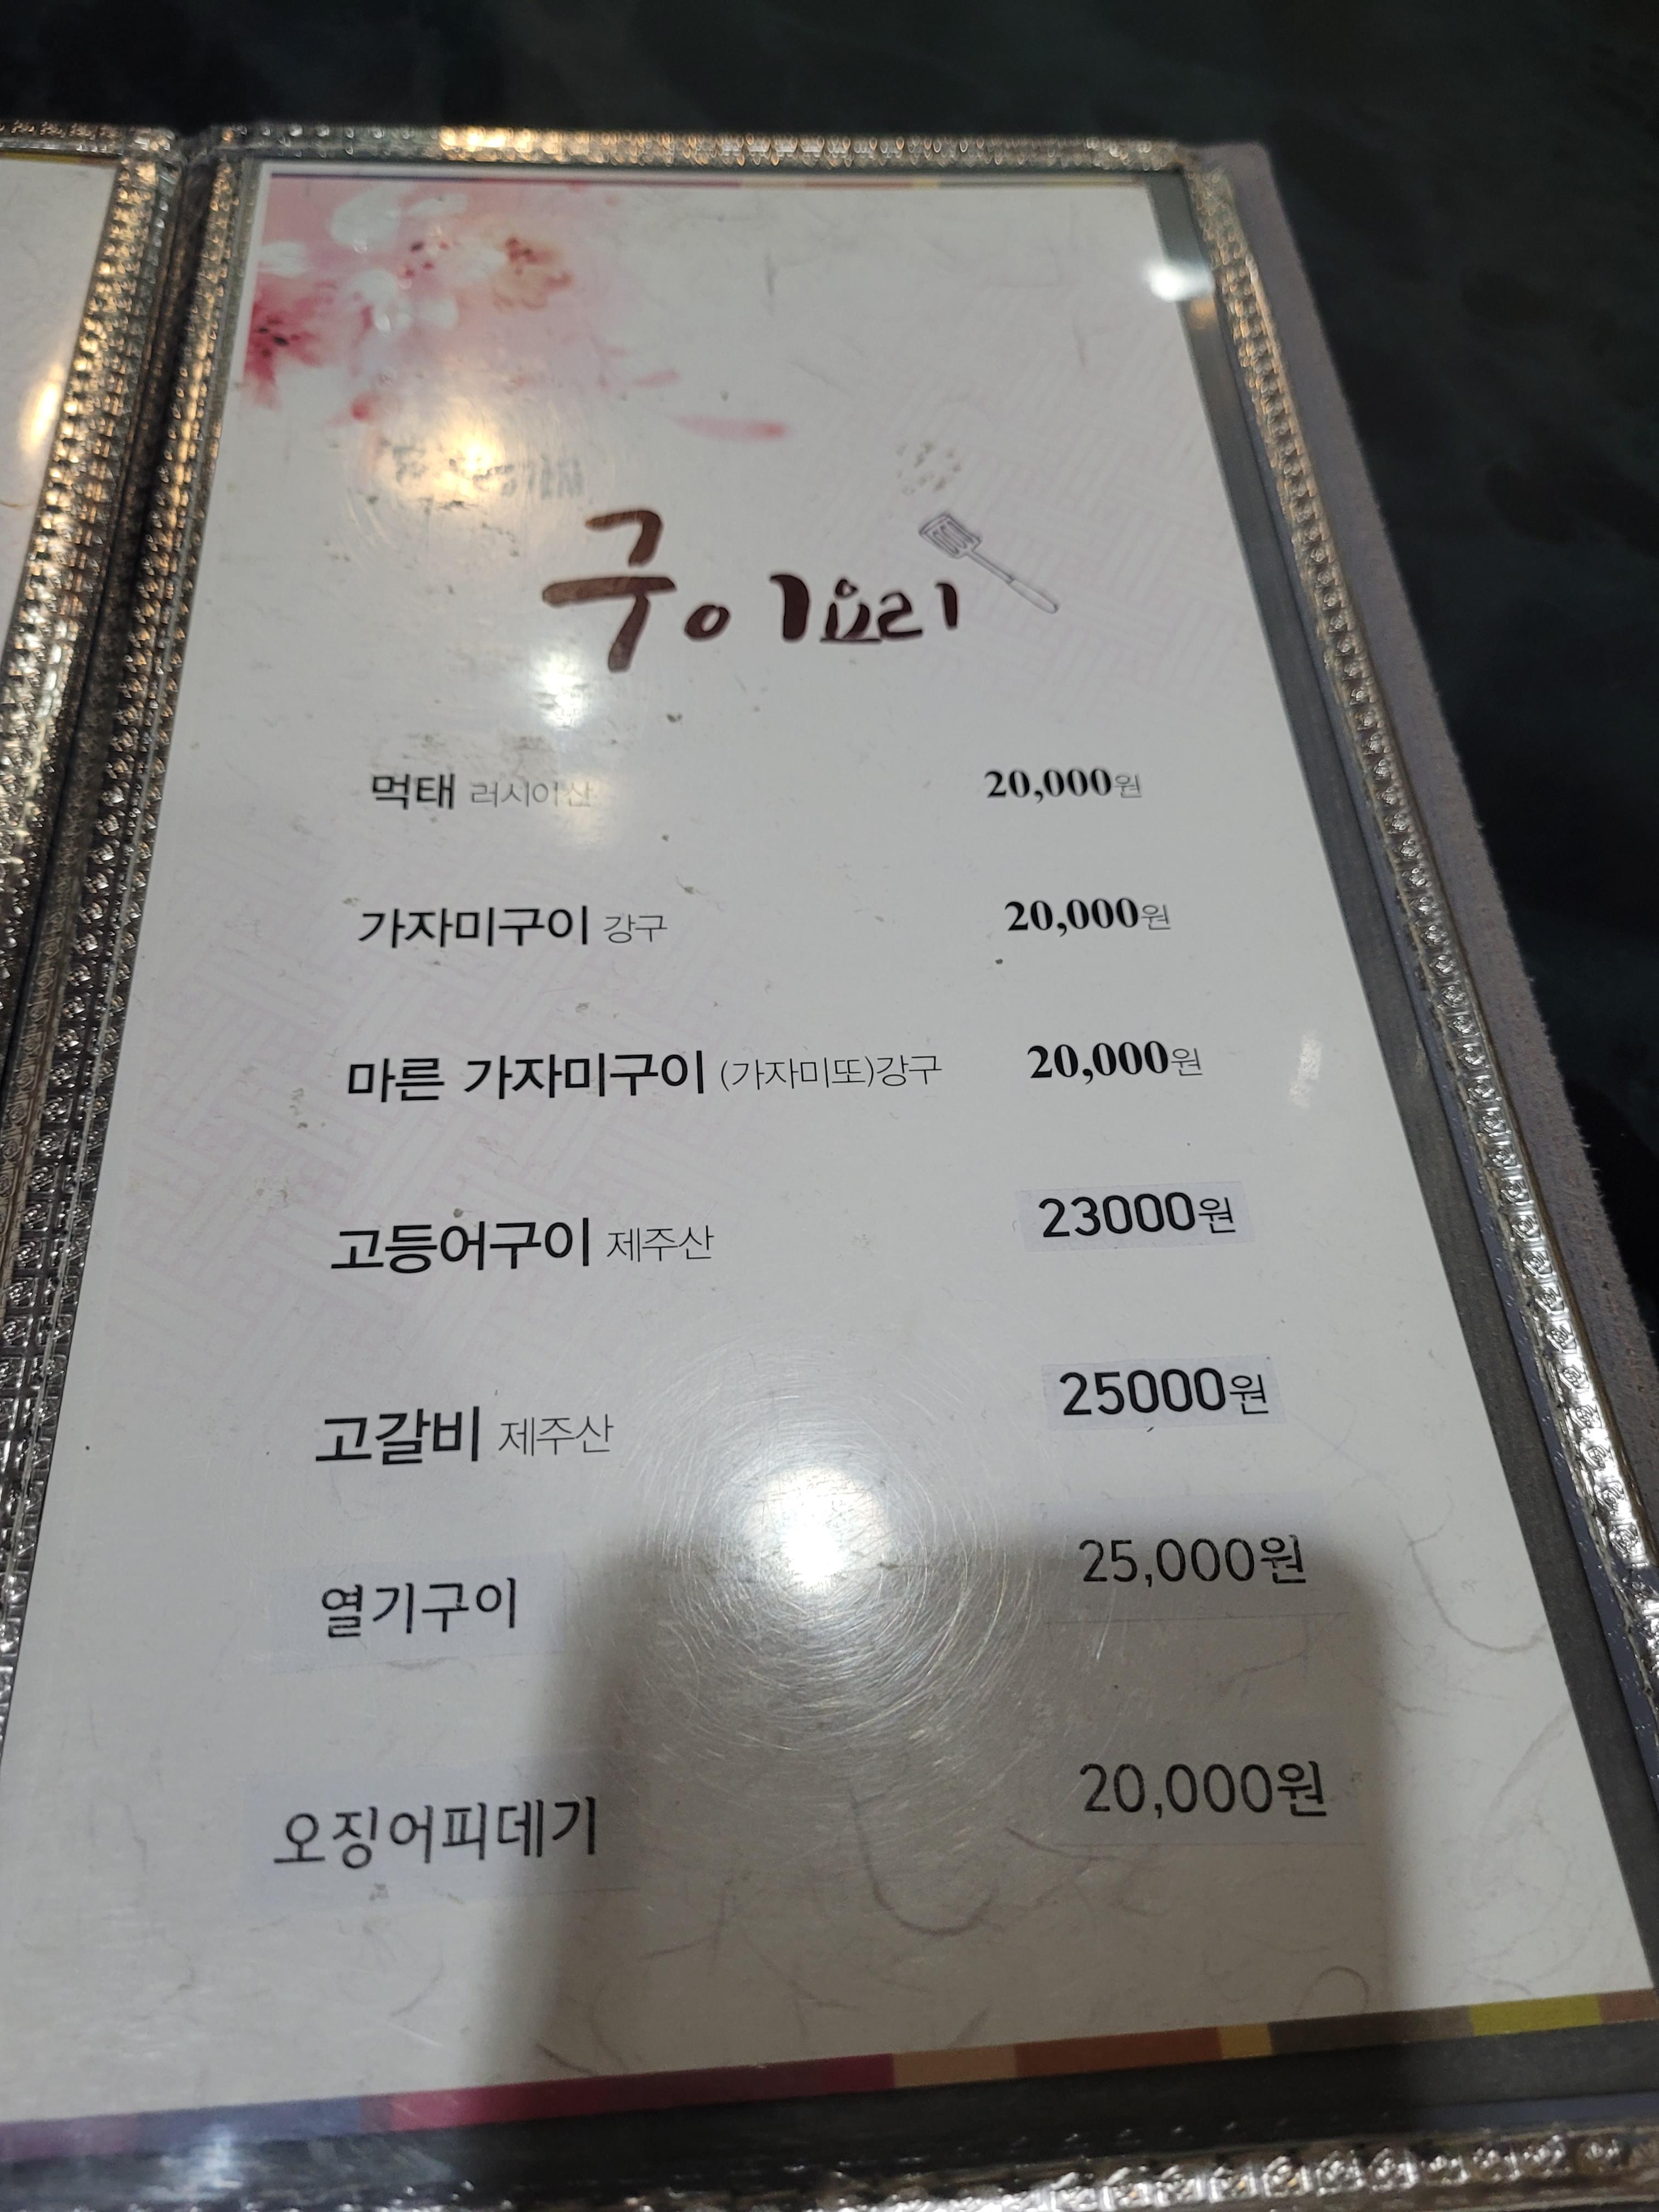 구이요리
먹태 러시아산 20,000원
가자미구이 강구 20,000원
마른 가자미구이 (가자미또)강구 20,000원
고등어구이 제주산 23000원
고갈비 제주산 25000원
열기구이 25,000원
오징어피데기 20,000원